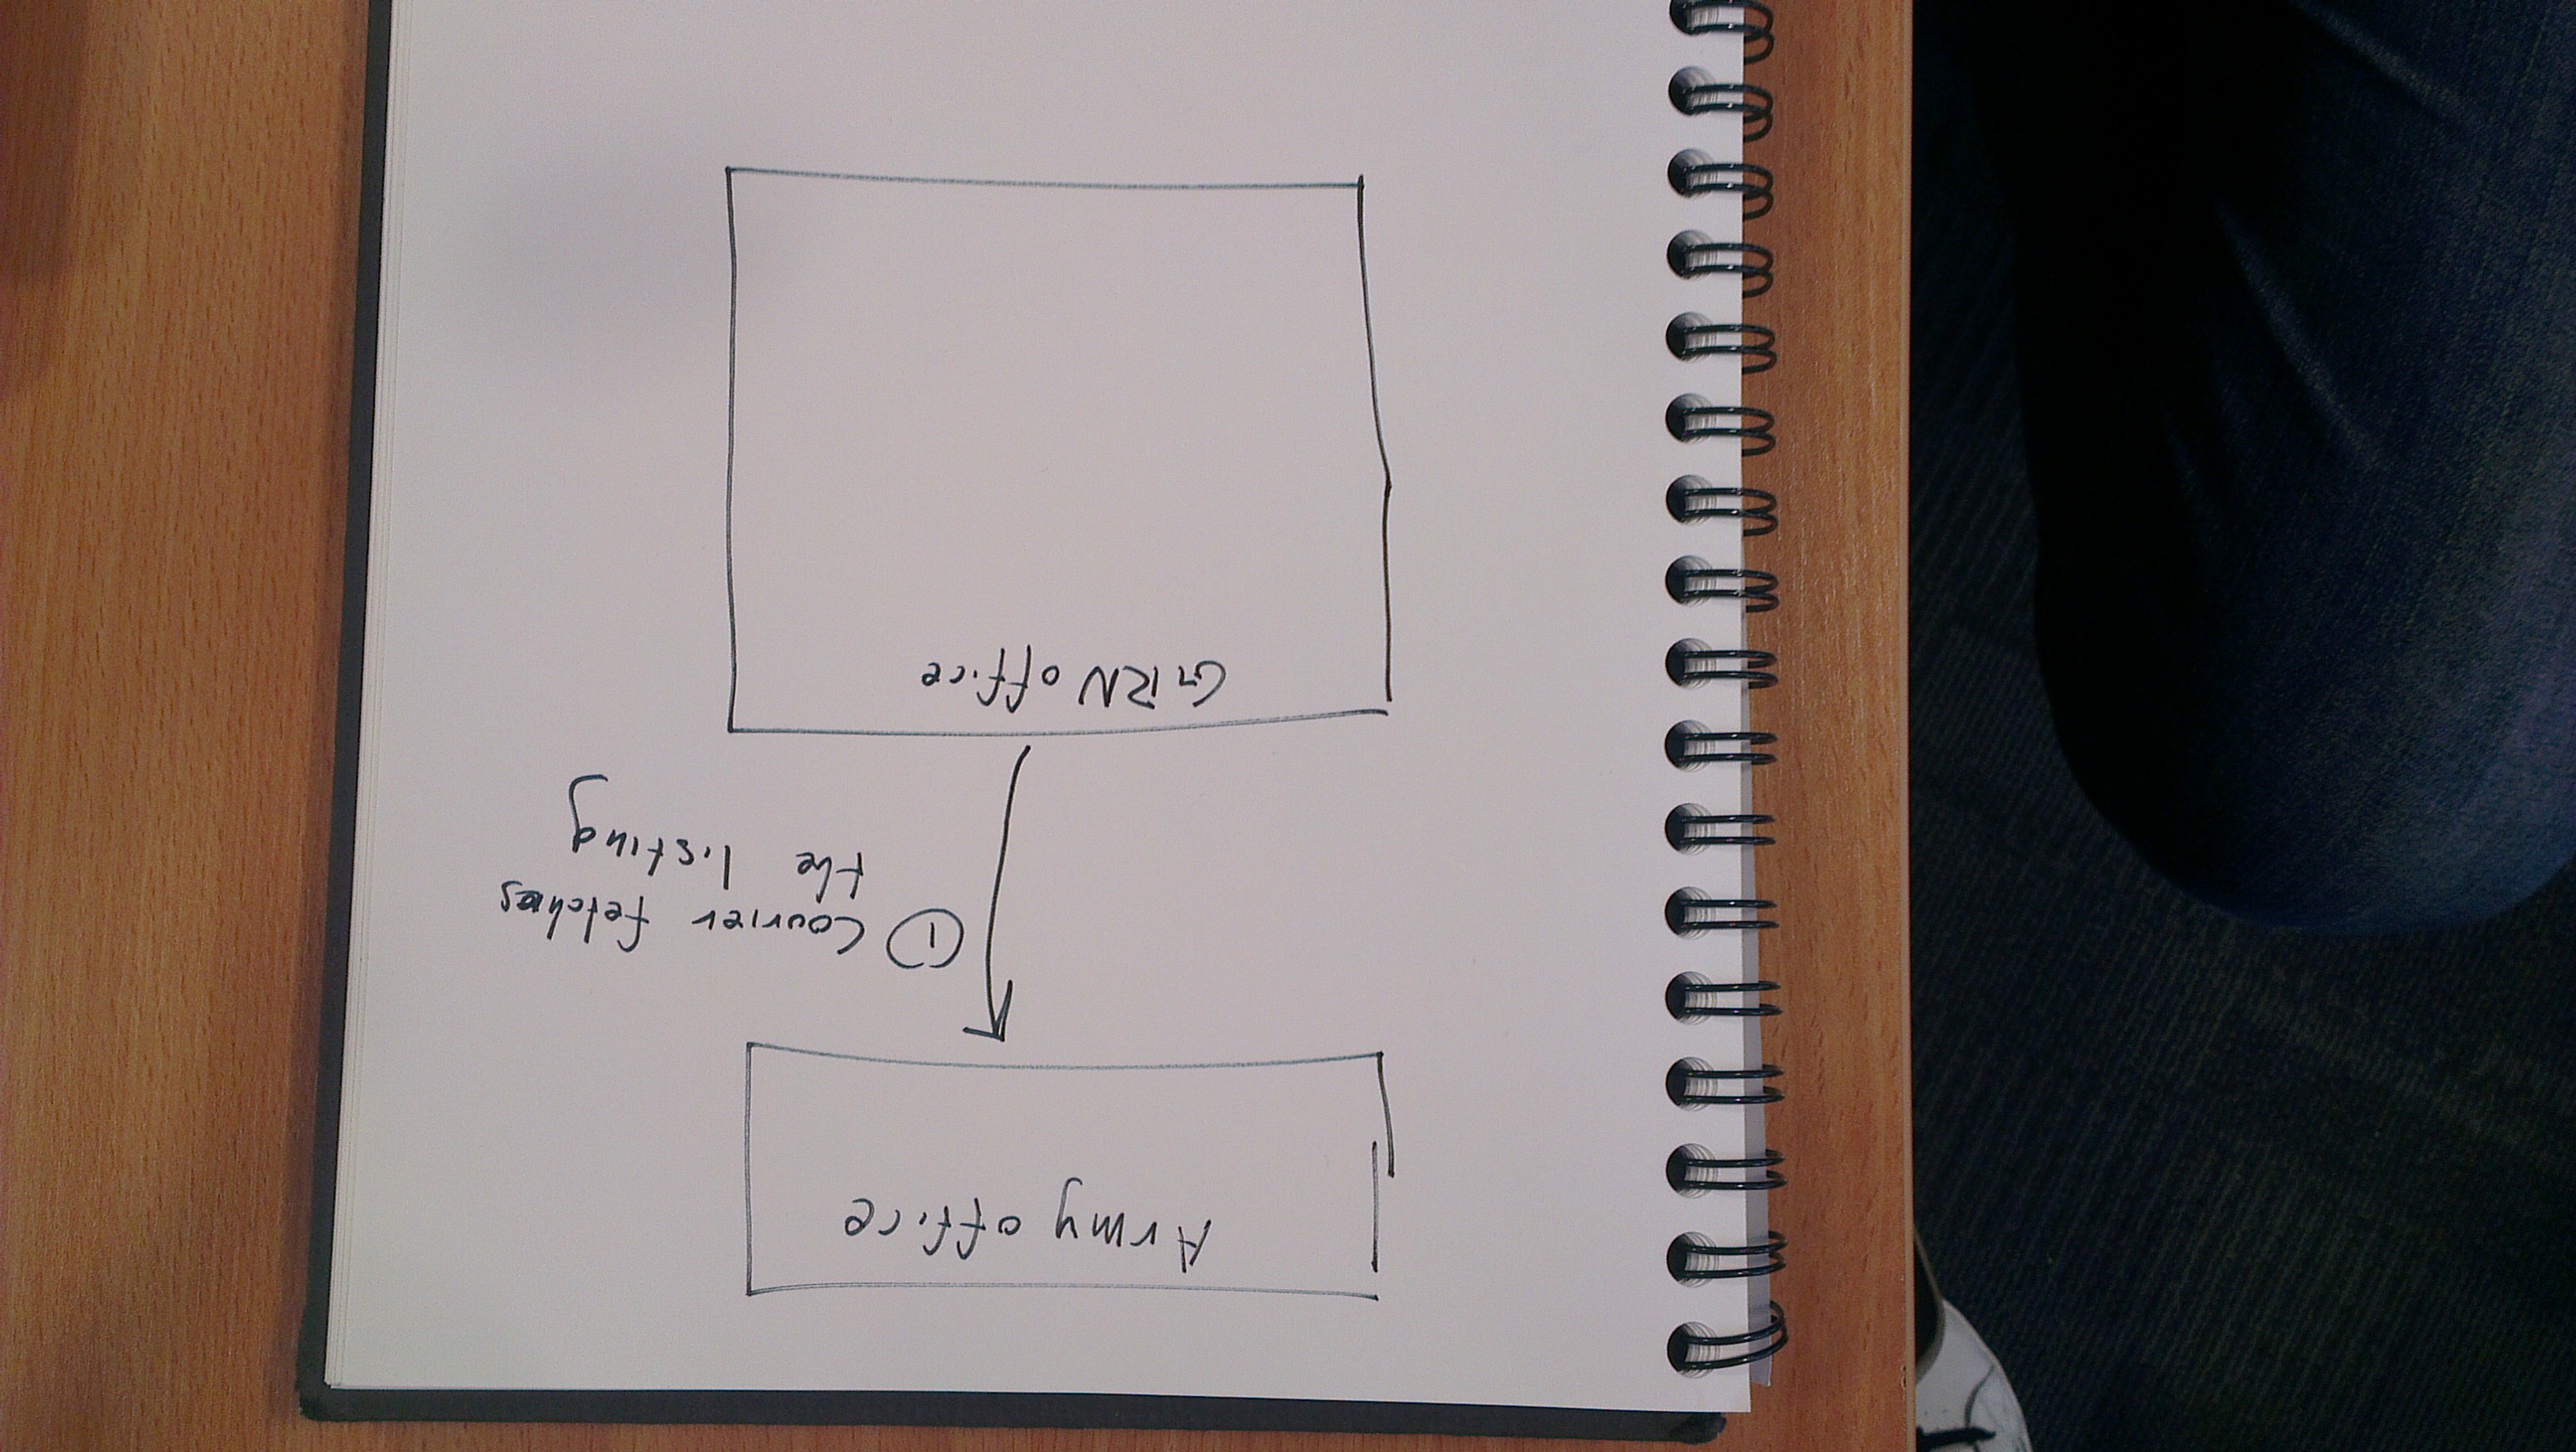 Army office
① Courier fetches
the listing
GRN office